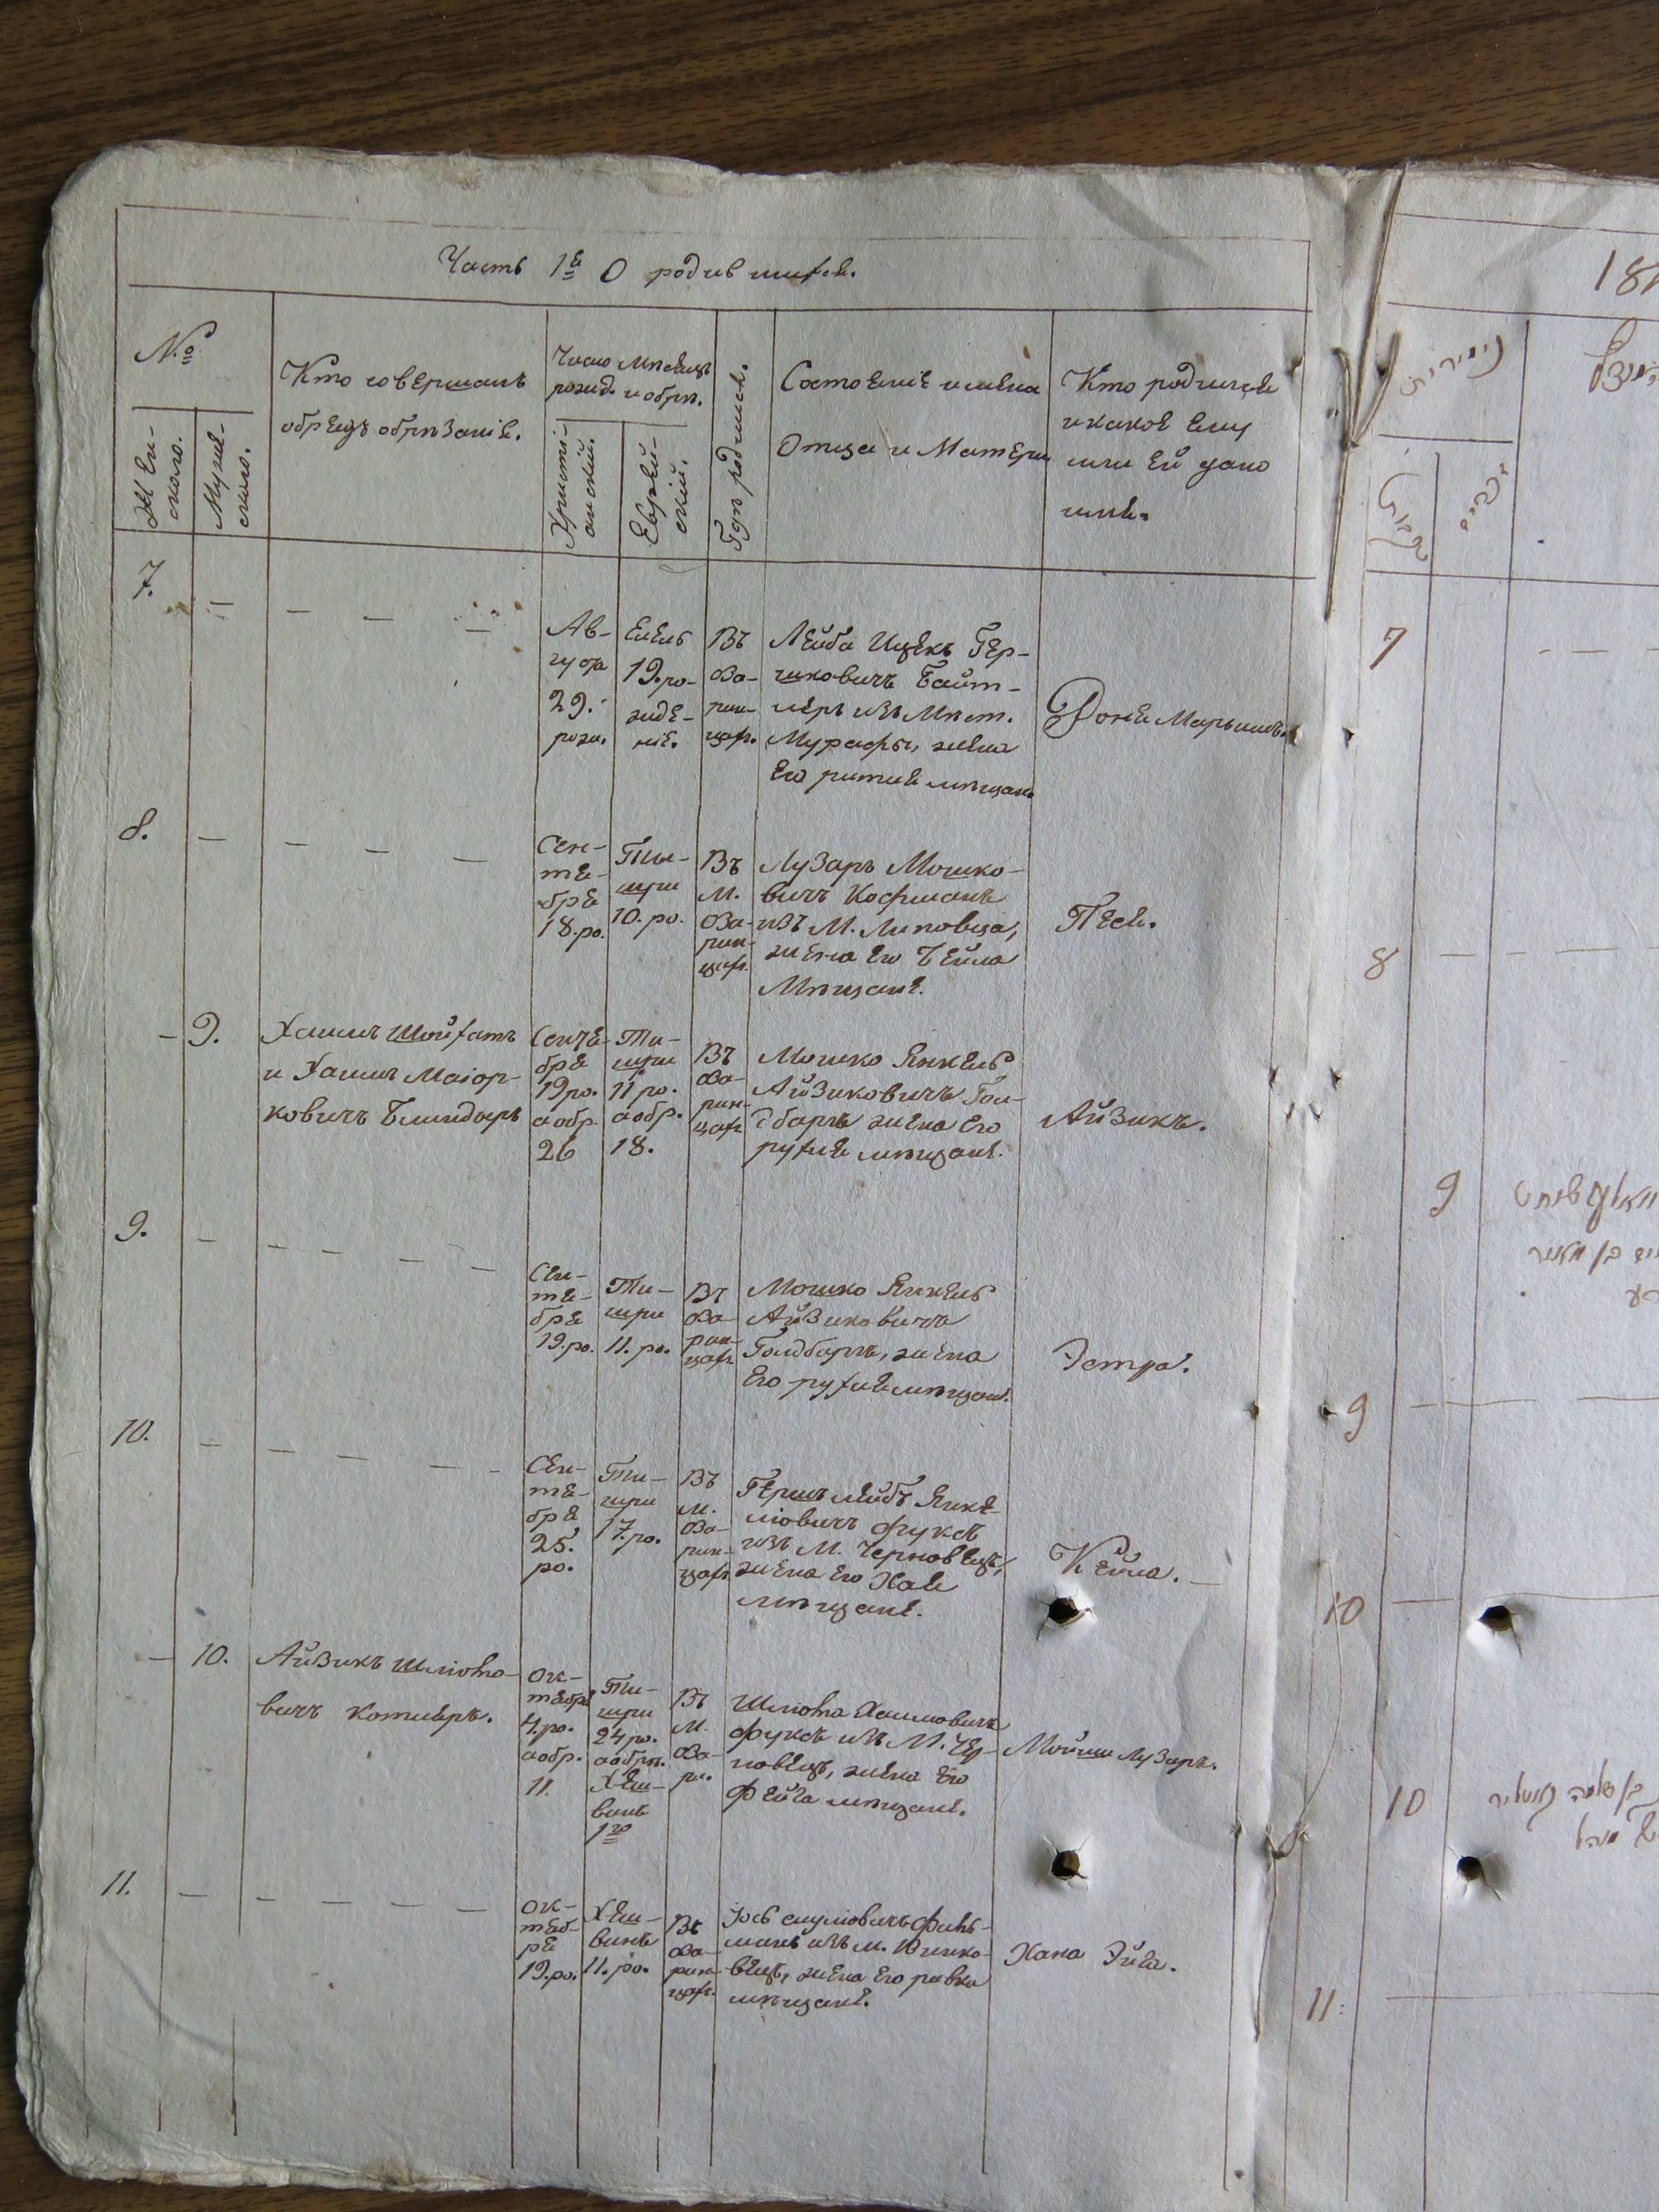 Часть 1я О родившихся.
№
Женского.
Мужеского.
Кто совершалъ
обрядъ обрѣзанія.
Число Мѣсяцъ
рожд. и обрѣ.
Христіанскій.
Еврейскій.
Гдѣ родился.
Состояніе имена
Отца и Матери
Кто родился
и какое ему
или ей дано
имя.
7.
Ав-
густа
29.
рож.
Елель
19. ро-
жде-
ніе.
Въ
Оза-
рин-
цах.
Лейба Ицекъ Гер-
шковичъ Байт-
леръ изъ Мѣст.
Мурафы, жена
его рития мѣщан.
Фоня Марьямъ.
8.
Сен-
тя-
бря
18. ро.
Ти-
шри
10. ро.
Въ
М.
Оза-
рин-
цах.
Лузаръ Мошко-
вичъ Кофманъ
изъ М. Липовца,
жена его Бейла
Мѣщане.
Песя.
9.
Хаимъ Шойхатъ
и Хаимъ Маіор-
ковичъ Блиндеръ
Сентя-
бря
19 ро.
а обр.
26
Ти-
шри
11 ро.
а обр.
18.
Въ
Оза-
рин-
цах
Мошко Янкель
Айзиковичъ Гол-
дбаргъ жена его
рухля мѣщане.
Айзикъ.
9.
Сен-
тя-
бря
19. ро.
Ти-
шри
11. ро.
Въ
Оза-
рин-
цах
Мошко Янкель
Айзиковичъ
Голдбаргъ, жена
его рухля мѣщане.
Эстра.
10.
Сен-
тя-
бря
25.
ро.
Ти-
шри
17. ро.
Въ
М.
Оза-
рин-
цах
Гершъ лейбъ Янке-
ліовичъ фуксъ
изъ М. Черновецъ,
жена его Хая
мѣщане.
Кейла.
10.
Айзикъ Шліома-
вичъ Котляръ.
Ок-
тября
4. ро.
а обр.
11.
Ти-
шри
24 ро.
а обрѣ.
Хеш-
винъ
1го
Въ
М.
Оза-
ри.
Шліома Хаимовичъ
фуксъ изъ М. Чер-
новецъ, жена его
Фейга мѣщане.
Мойши Лузаръ.
11.
Ок-
тяб-
ря
19. ро.
Хеш-
винъ
11. ро.
Въ
Оза-
рин-
цах.
Іось сруліовичъ Фиш-
манъ изъ м. Юшко-
вецъ, жена его ривка
мѣщане.
Хана Эйга.
7
8
9
9
10
10
11